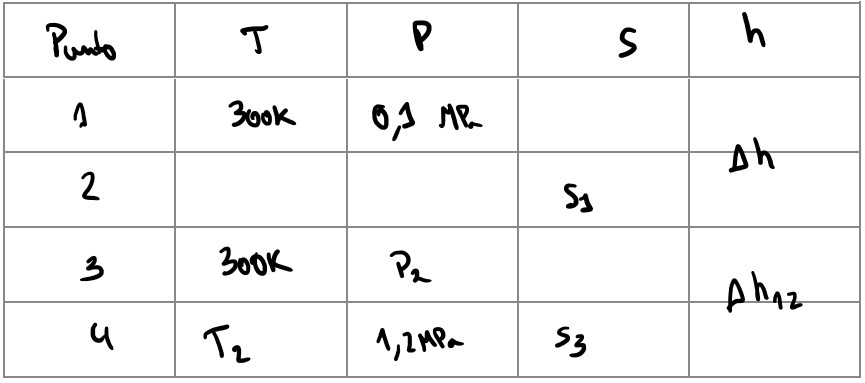 Punto T P S h
1 300K 0,1 MPa
Δh
2 S1
3 300K P2
Δh12
4 T2 1,2MPa S3